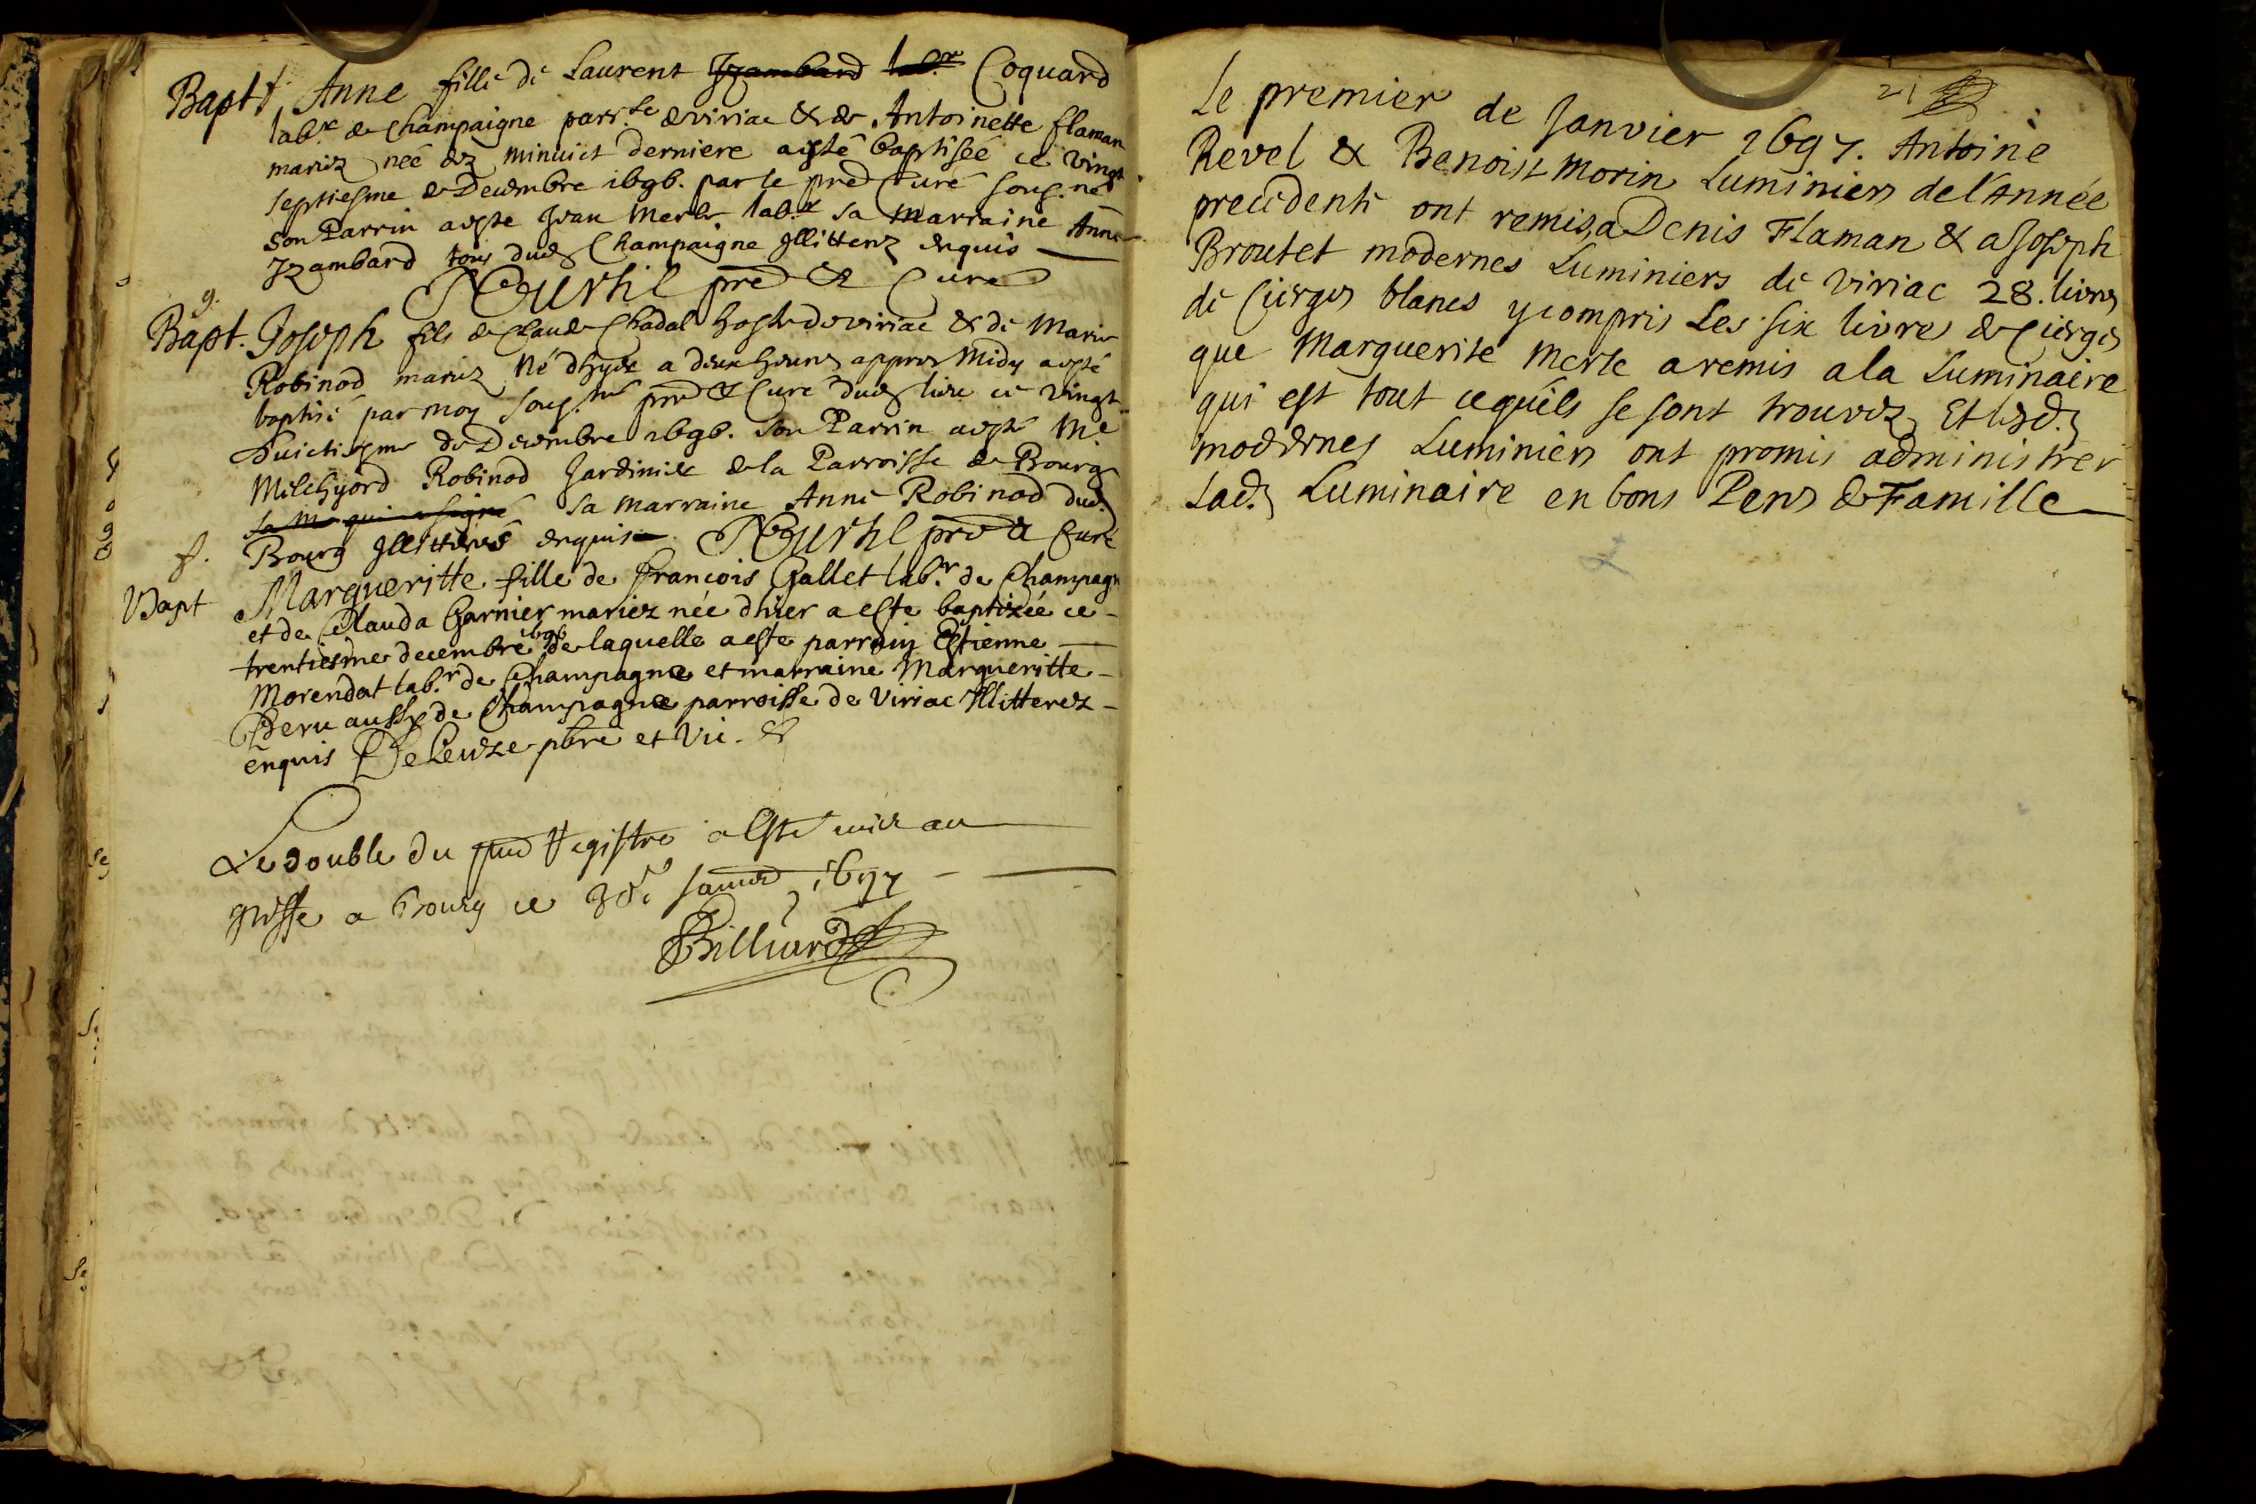 Bapt f. Anne fille de Laurent Izambard labr. Coquard
labr. de Champaigne parr.se de viriac & de Antoinette flaman
mariez née dez minuict derniere a esté baptisée ce vingt
septiesme de Decembre 1696. par le pred Curé soug.né
son Parrin a esté Jean Merle lab.r sa marraine Anne
Izambard tous dud. Champaigne Illitterez enquis
pred & Curé
g.
Bapt. Joseph fils de Claude Chadal hoste de viriac & de Marie
Robinod mariez né dhyer a deux heures appres Midy a esté
baptisé par moy soug.né pred & Curé dud. lieu ce vingt
huictiesme de Decembre 1696. son Parrin a esté M.e
Milchyord Robinod Jardinier de la Parroisse de Bourg
sa ma qui a signé sa marraine Anne Robinod dud.
f. Bourg Illitterés enquis. pred & Curé
Bapt Margueritte fille de francois Gallet lab.r de Champagne
et de Clauda Garnier mariez née dhier a este baptizée ce
trentiesme decembre 1696 de laquelle a este parrain Estienne
Morendat lab.r de Champagne et marraine Margueritte
Peru aussy de Champagne parroisse de Viriac Illitterez
enquis DeLeuze pbre et Vic. &
Le double du pnt Registre a Esté mis au
greffe a bourg ce janvier 1697
Billiard
21
Le premier de Janvier 1697. Antoine
Revel & Benoist Morin Luminiers de l'Année
precedente ont remis a Denis Flaman & a Joseph
Broutet modernes Luminiers de viriac 28. livres
de Cierges blancs y compris Les six livres de Cierges
que Marguerite Merle a remis a la Luminaire
qui est tout ce quils se sont trouvez Et lesd.
modernes Luminiers ont promis administrer
Lad. Luminaire en bons Peres de Famille